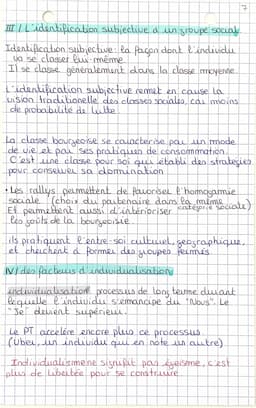 7
III / L'identification subjective à un groupe social
Identification subjective : la façon dont l'individu
va se classer lui-même.
Il se classe généralement dans la classe moyenne.
L'identification subjective remet en cause la
vision traditionnelle des classes sociales, car moins
de probabilité de lutte.
La classe bourgeoise se caractérise par un mode
de vie et par ses pratiques de consommation.
C'est une classe pour soi qui établi des stratégies
pour conserver sa domination
• Les rallys permettent de favoriser l'homogamie
sociale (choix du partenaire dans la même
catégorie sociale)
Et permettent aussi d'intérioriser
les goûts de la bourgeoisie.
ils pratiquent l'entre-soi culturel, géographique,
et cherchent à former des groupes fermés.
IV/ des facteurs d'individualisation
individualisation : processus de long terme durant
lequelle l'individu s'émancipe du "Nous". Le
"Je" devient supérieur.
Le PT accélère encore plus ce processus.
(Uber, un individu qui en note un autre)
Individualisme ne signifit pas égoïsme, c'est
plus de libertée pour se construire